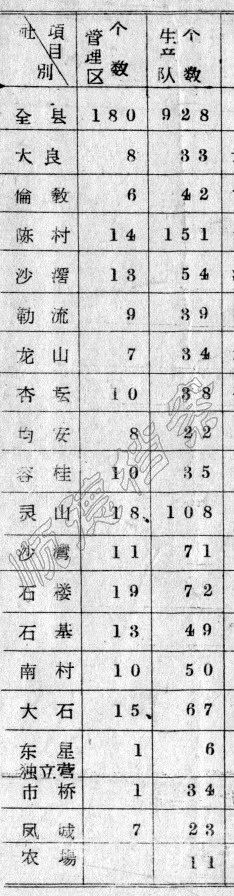 社 項目 別 管理区 个数 生产队 个数
全县 180 928
大良 8 33
倫教 6 42
陈村 14 151
沙滘 13 54
勒流 9 39
龙山 7 34
杏坛 10 38
均安 8 22
容桂 10 35
灵山 18 108
沙湾 11 71
石楼 19 72
石基 13 49
南村 10 50
大石 15 67
东星 1 6
独立营
市桥 1 34
凤城 7 23
农場 11
顺德档案